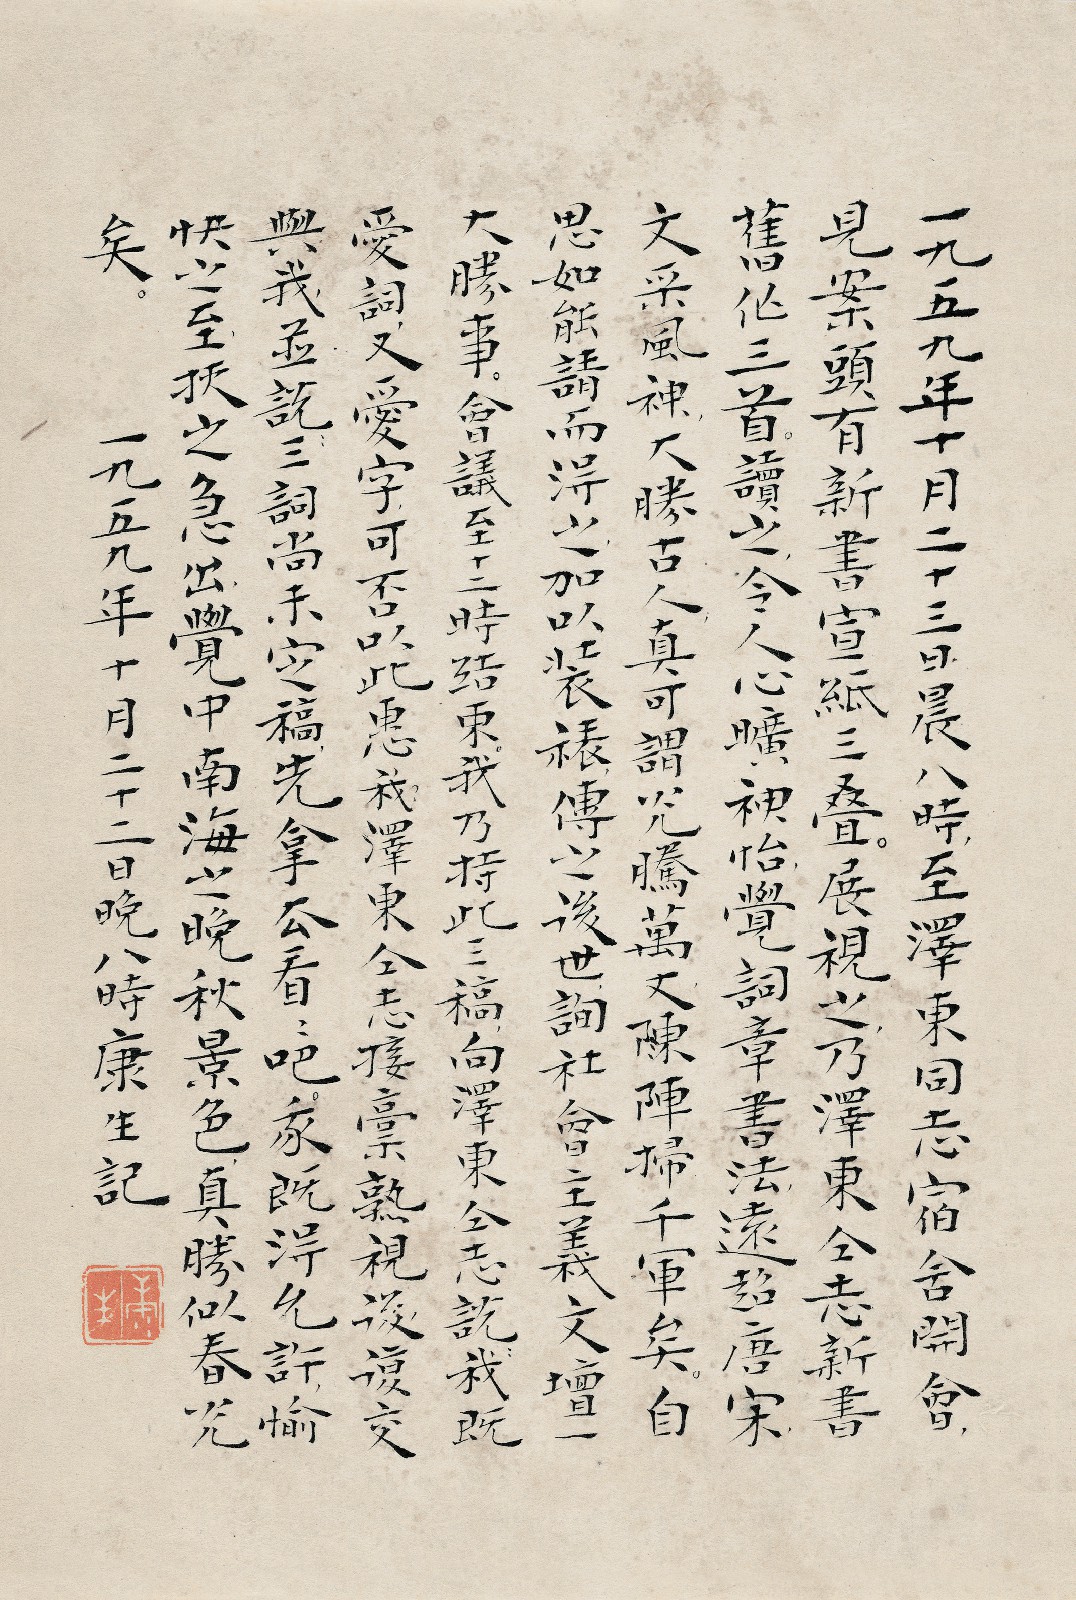 一九五九年十月二十三日晨八時，至澤東同志宿舍開會，
見案頭有新書宣紙三叠。展視之，乃澤東仝志新書
舊作三首。讀之，令人心曠神怡，覺詞章書法，遠超唐宋，
文采風神，大勝古人，真可謂光騰萬丈，陳陣掃千軍矣。自
思如能請而淂之，加以裝裱，傳之後世，詢社會主義文壇一
大勝事。會議至十二時结束。我乃持此三稿，向澤東仝志説：我既
愛詞，又愛字，可否以此惠我。澤東仝志接稾熟視後，復交
與我，並説：三詞尚未定稿，先拿去看看吧。余既淂允許，愉
快之至，挾之急出，覺中南海之晚秋景色，真勝似春光
矣。 一九五九年十月二十二日晚八時康生記
康生